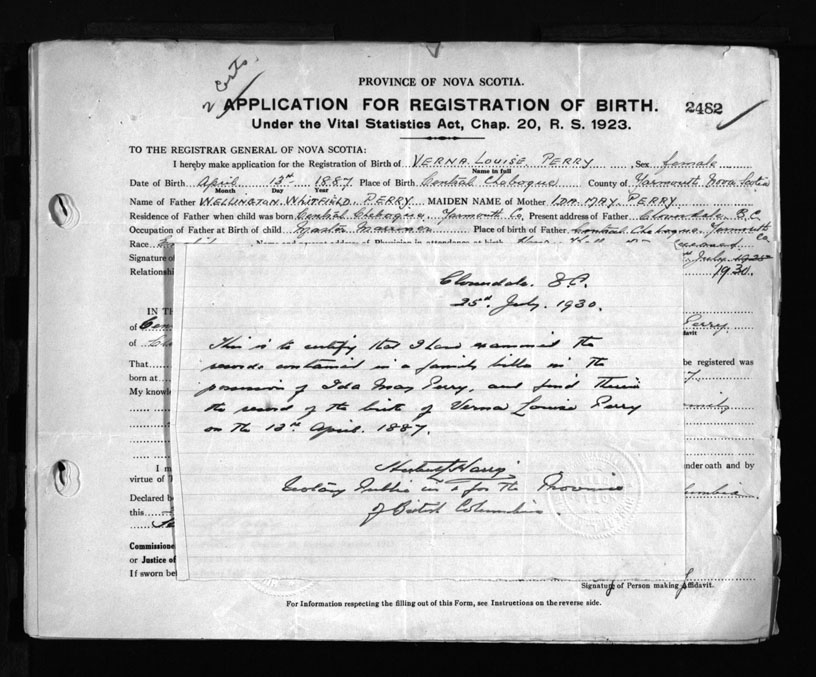 2 Certs.
PROVINCE OF NOVA SCOTIA.
APPLICATION FOR REGISTRATION OF BIRTH. 2482
Under the Vital Statistics Act, Chap. 20, R. S. 1923.
TO THE REGISTRAR GENERAL OF NOVA SCOTIA:
I hereby make application for the Registration of Birth of VERNA LOUISE PERRY Sex female
Name in full
Date of Birth April 12th 1887 Place of Birth Central Chebogue County of Yarmouth Nova Scotia
Month Day Year
Name of Father WELLINGTON WHITFIELD PERRY MAIDEN NAME of Mother IDA MAY PERRY
Residence of Father when child was born Central Chebogue, Yarmouth Co, Present address of Father Cloverdale, B.C.
Occupation of Father at Birth of child Master Mariner Place of birth of Father Central Chebogue, Yarmouth Co
Race
Signature of July 1930
Relationsh 1930.
Cloverdale. B.C.
25th July, 1930.
IN TH
of Cen Perry
davit
of
This is to certify that I have examined the
records contained in a family bible in the
possession of Ida May Perry, and find therein
the record of the birth of Verna Louise Perry
on the 12th April. 1887.
That be registered was
born at
My knowl
Herbert Harris
Notary Public in & for the Province
of British Columbia.
I m under oath and by
virtue of T
Declared b lumbia
this
Commissione
or Justice of
If sworn be
Signature of Person making Affidavit.
For Information respecting the filling out of this Form, see Instructions on the reverse side.